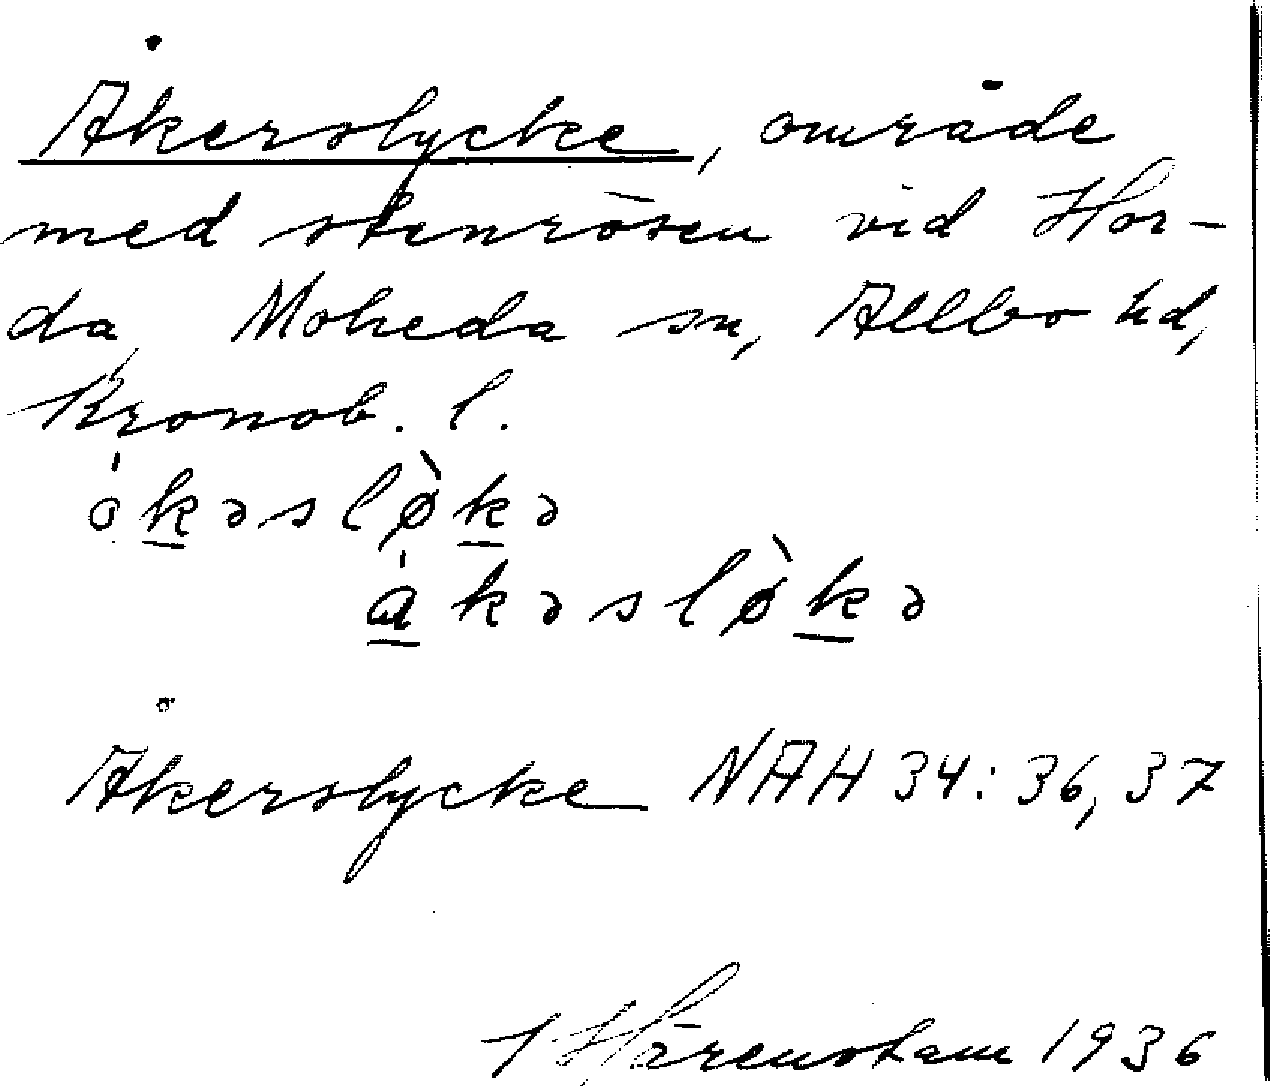 Åkerslycke, område
med stenrösen vid Hor-
da, Moheda sn, Allbo hd,
Kronob. l.
ókəslø̀kə
ákəslø̀kə
Åkerslycke NAH 34: 36, 37
Härenstam 1936